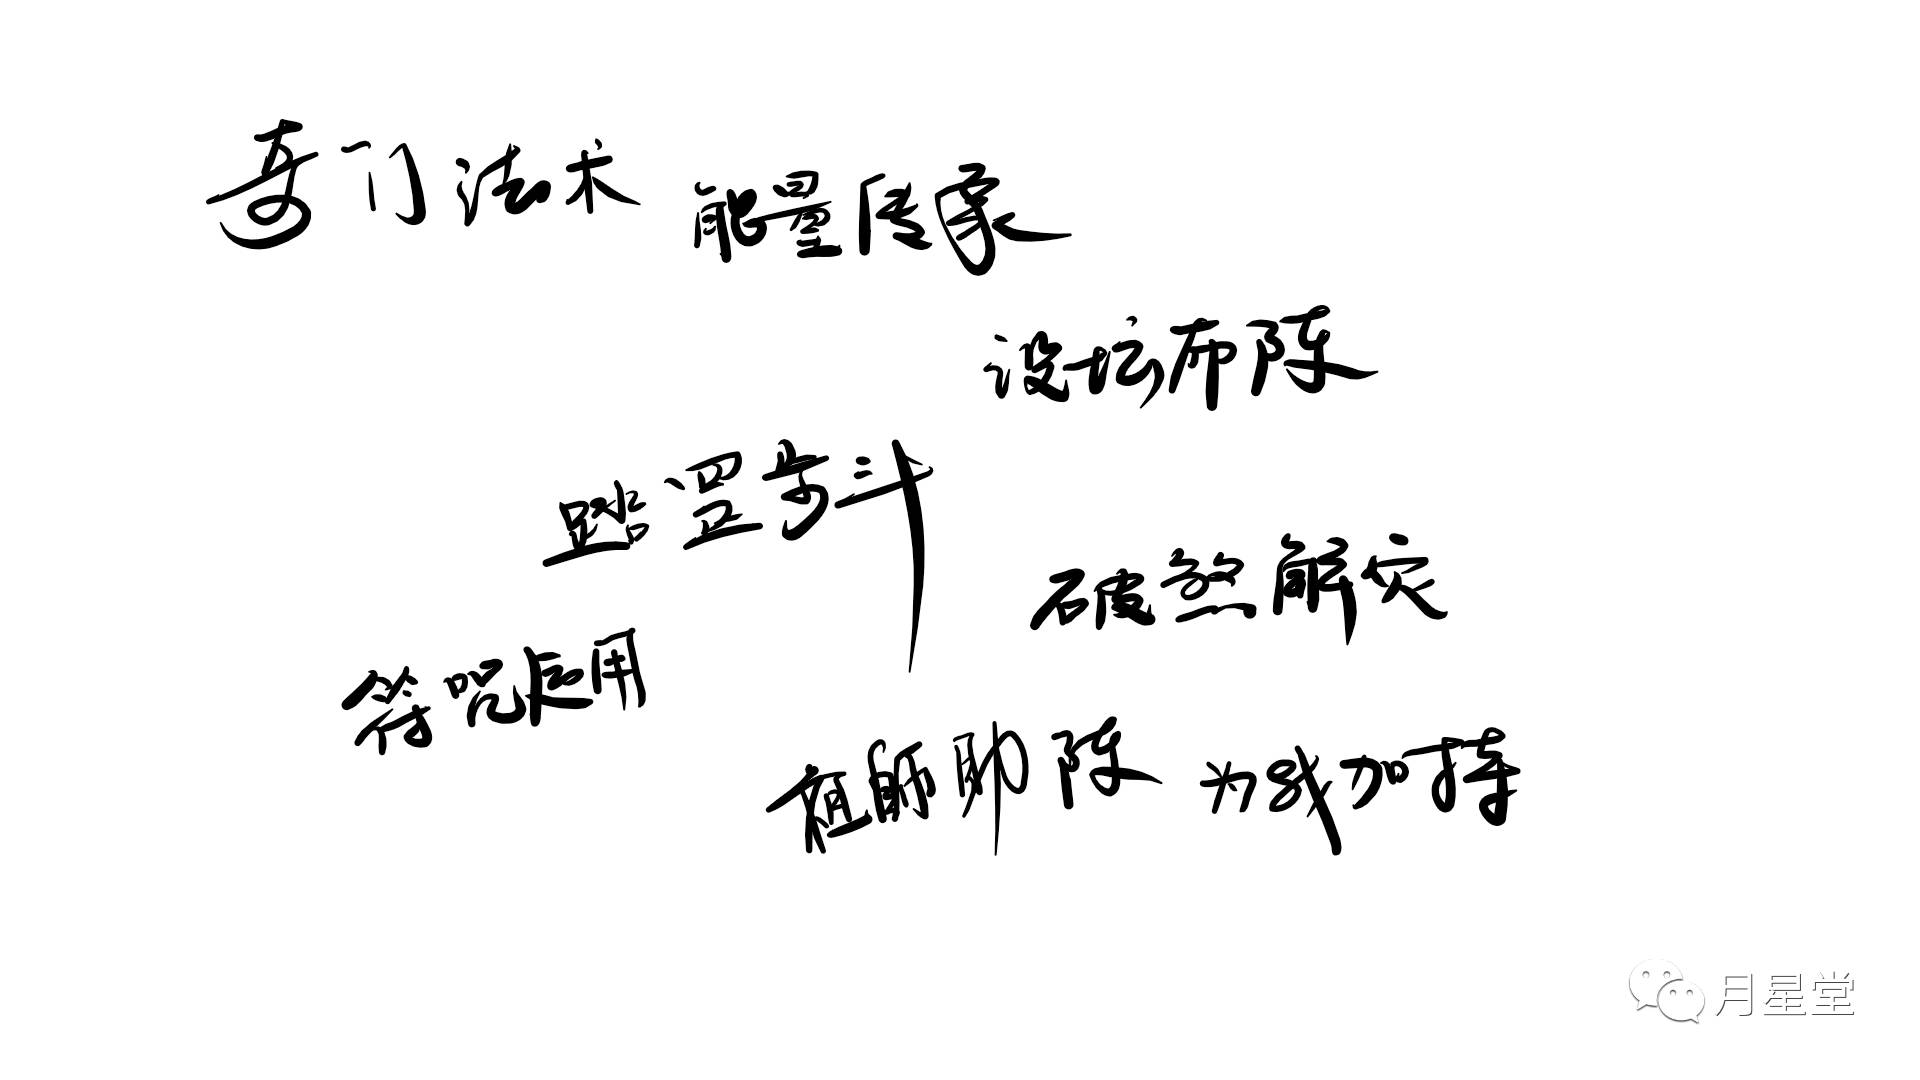 奇门法术 能量传承
设坛布阵
踏罡步斗
破煞解灾
符咒运用
祖师助阵 为我加持
月星堂